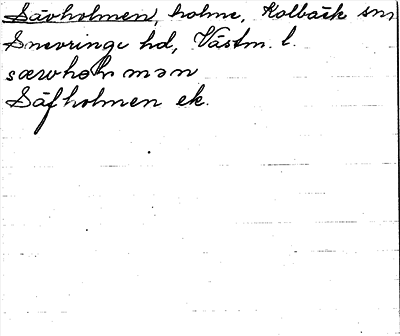 Sävholmen, holme, Kolbäck sn
Snevringe hd, Västm. l.
sæwhəlmən
Säfholmen ek.